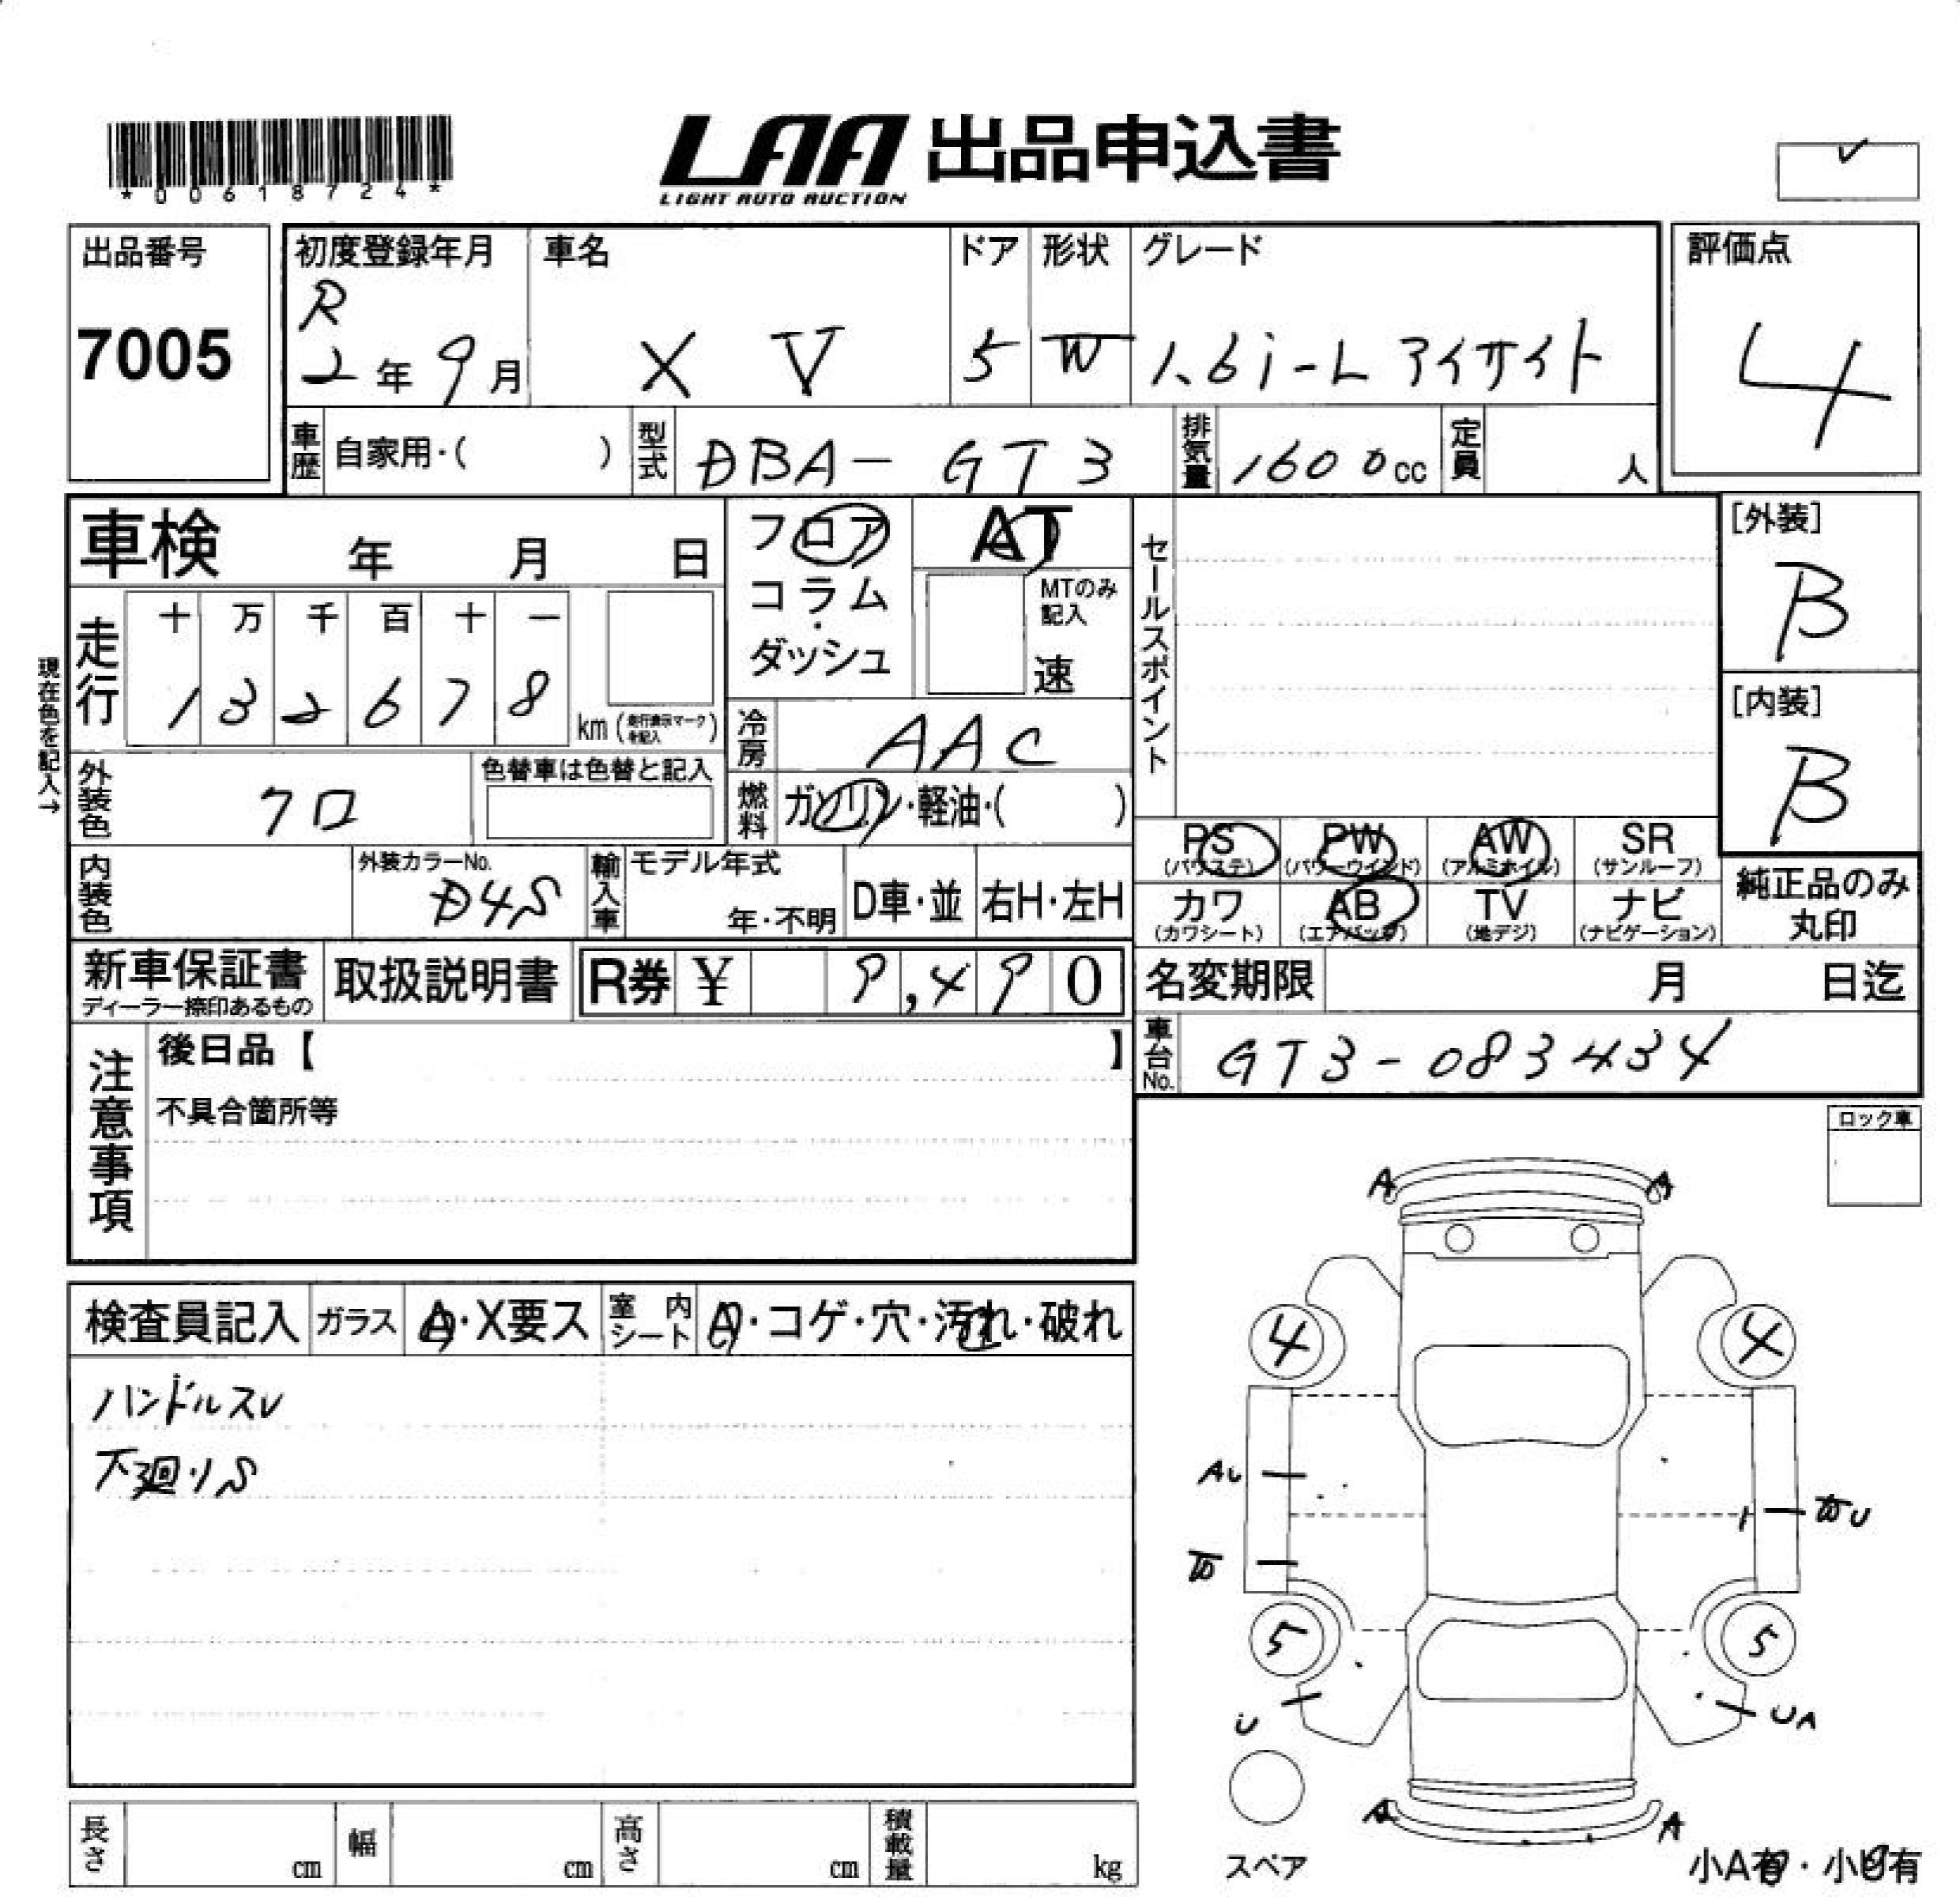 *00618724*
LAA 出品申込書
LIGHT AUTO AUCTION
出品番号
7005
初度登録年月
R
2年9月
車名
XV
ドア
5
形状
W
グレード
1.6i-L アイサイト
評価点
4
車歴 自家用・( )
型式 DBA-GT3
排気量 1600cc
定員 人
車検 年 月 日
フロア
コラム・
ダッシュ
AT
MTのみ
記入
速
セールスポイント
[外装]
B
[内装]
B
現在色を記入→
走行
十 万 千 百 十 一
1 3 2 6 7 8
km (走行表示マークを記入)
冷房 AAC
外装色 クロ
色替車は色替と記入
燃料 ガソリン・軽油・( )
PS (パワステ)
PW (パワーウインド)
AW (アルミホイル)
SR (サンルーフ)
カワ (カワシート)
AB (エアバッグ)
TV (地デジ)
ナビ (ナビゲーション)
純正品のみ
丸印
内装色
外装カラーNo.
D4S
輸入車
モデル年式
年・不明
D車・並
右H・左H
新車保証書
ディーラー捺印あるもの
取扱説明書
R券 ¥ 9,490
名変期限 月 日迄
車台No. GT3-083434
注意事項
後日品【 】
不具合箇所等
ロック車
検査員記入
ガラス A・X要ス
室内シート A・コゲ・穴・汚れ・破れ
ハンドルスレ
下廻りS
A A
4 4
AU
5 5
U
UA
A A
スペア
小A有・小U有
長さ cm
幅 cm
高さ cm
積載量 kg